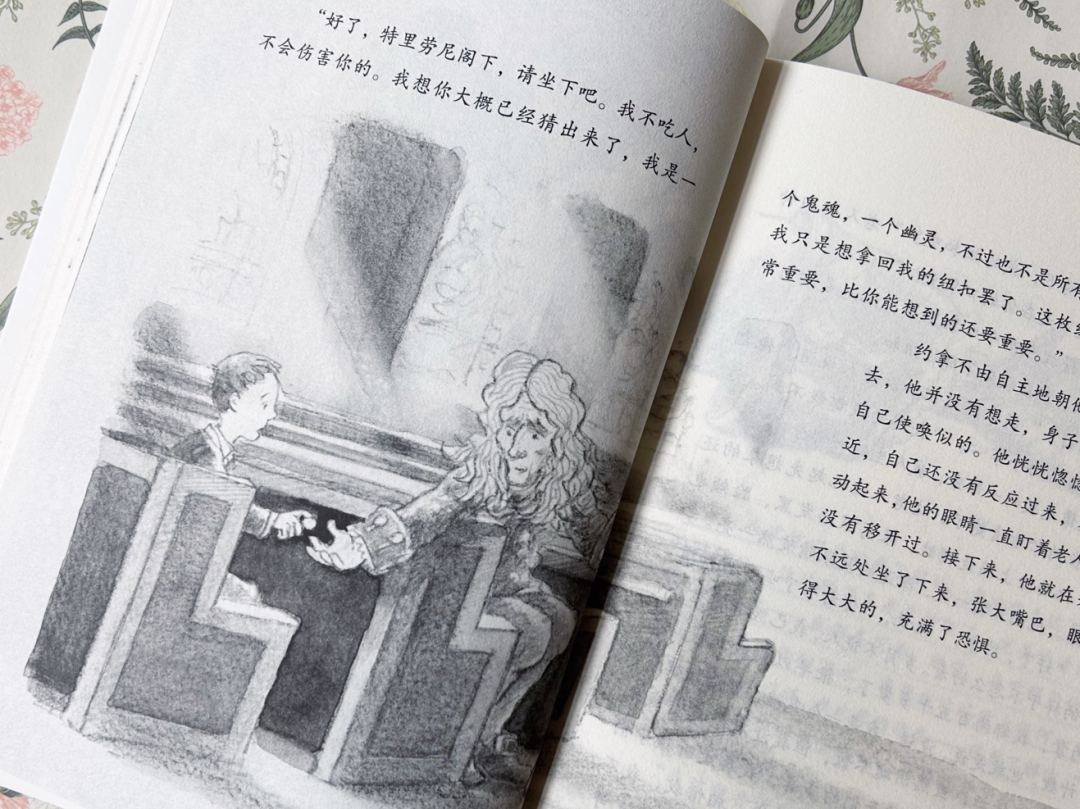 “好了，特里劳尼阁下，请坐下吧。我不吃人，
不会伤害你的。我想你大概已经猜出来了，我是一
个鬼魂，一个幽灵，不过也不是所有
我只是想拿回我的纽扣罢了。这枚纽
常重要，比你能想到的还要重要。”
约拿不由自主地朝他
去，他并没有想走，身子
自己使唤似的。他恍恍惚惚
近，自己还没有反应过来，
动起来，他的眼睛一直盯着老人
没有移开过。接下来，他就在
不远处坐了下来，张大嘴巴，眼
得大大的，充满了恐惧。